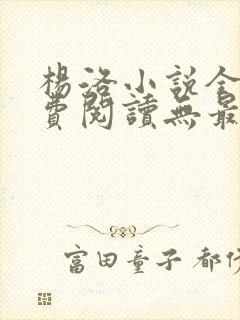 楊洛小說全
費閱讀無最
富田童子 都